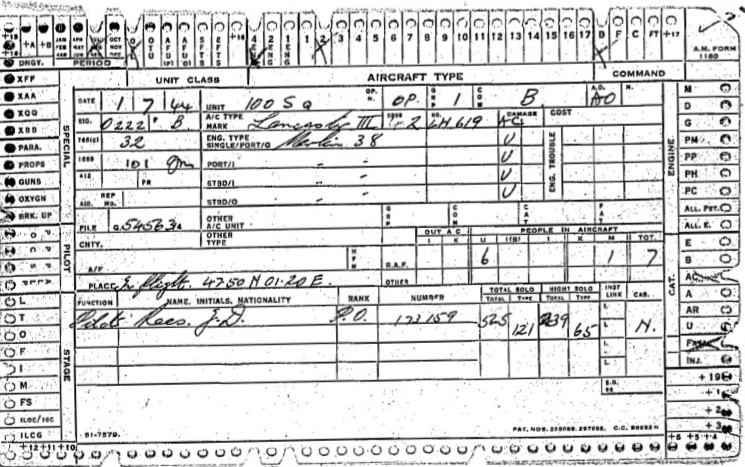 +A +B JAN FEB MAR APR MAY JUN OCT NOV DEC O OTU AFU (P) AFU (O) SFTS EFTS +18 4 E 2 ENG 1 ENG 1 2 3 4 5 6 7 8 9 10 11 12 13 14 15 16 17 B F C FT +17
+16 A.M. FORM 1180
DNGY. PERIOD UNIT CLASS AIRCRAFT TYPE COMMAND
XFF DATE 1 7 44 UNIT 100 Sq OP. OP. GRP 1 COM B A.O. AO N. M
XAA SIG. 0222 B A/C TYPE MARK Lancaster III CODE 2 NO. LM619 DAMAGE AC COST D
XQQ 32 ENG. TYPE SINGLE/PORT/O Merlin 38 U ENG. TROUBLE G
XBB 101 PORT/I " " U PM
PARA. STBD/I " " U PP
PROPS REP NO STBD/O " " U PH
GUNS PC
OXYGN ALL. PET.
BRK. UP FILE OTHER A/C UNIT GRP COM CAT FAT ALL. E.
CNTY. OTHER TYPE OUT A C I K PEOPLE IN AIRCRAFT U I(B) I K M TOT. E
A/F R.A.F. 6 1 7 B
PLACE In flight. 4750 N 01.20 E. OTHER AC
SPECIAL PILOT STAGE ENGINE CAT.
FUNCTION NAME. INITIALS. NATIONALITY RANK NUMBER TOTAL SOLO TOTAL TYPE NIGHT SOLO TOTAL TYPE INST LINK CAS.
Pilot Rees. J.D. P.O. 173159 525 121 239 65 L. N.
L A
T AR
O U
F FAM
I INJ.
M +19
FS +1
ILOC/SEC +2
ILCG 51-7579. PAT. NOS. C.C. +3
+12 +11 +10 +6 +5 +4